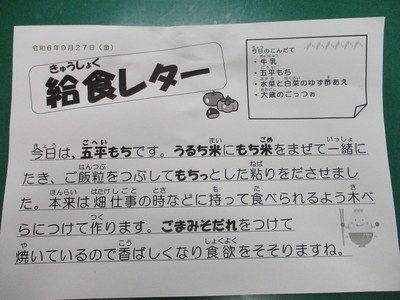 令和6年9月27日(金)
きゅうしょく
給食レター
今日のこんだて
・牛乳
・五平もち
・水菜と白菜のゆず酢あえ
・大歳のごっつぉ
今日は、五平もちです。うるち米にもち米をまぜて一緒に
たき、ご飯粒をつぶしてもちっとした粘りをださせまし
た。本来は畑仕事の時などに持って食べられるよう木べ
らにつけて作ります。ごまみそだれをつけて
焼いているので香ばしくなり食欲をそそりますね。